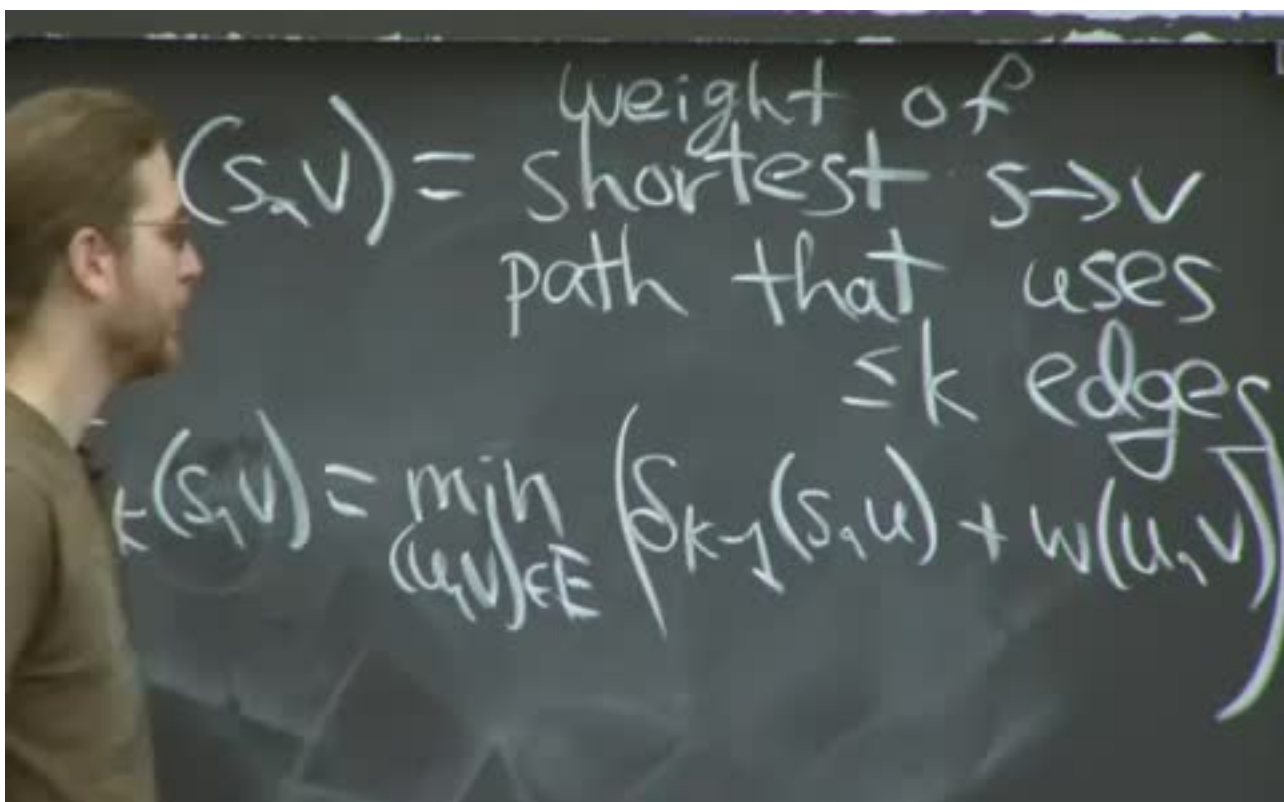 weight of
(s,v) = shortest s→v
path that uses
≤k edges
k(s,v) = min (δk-1(s,u) + w(u,v))
(u,v)∈E